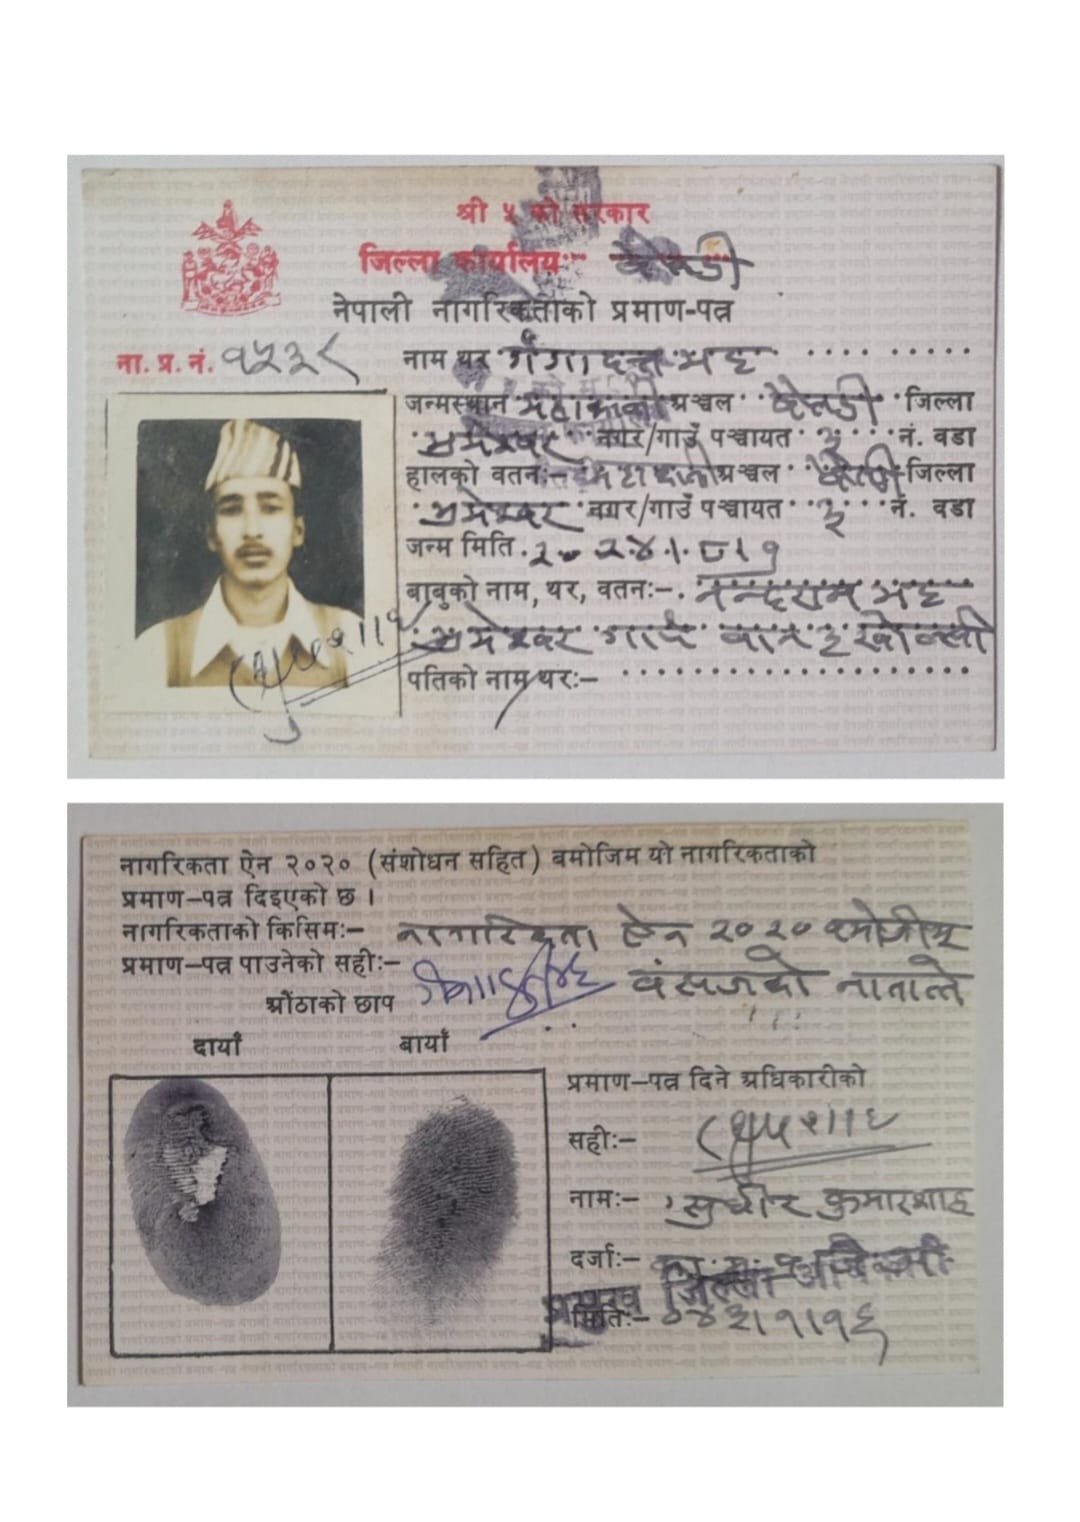 श्री ५ को सरकार
जिल्ला कार्यालय
नेपाली नागरिकताको प्रमाण-पत्र
ना. प्र. नं.
नाम थर गंगा दत्त भट्ट
जन्मस्थान महाकाली अञ्चल बैतडी जिल्ला
भुमेश्वर नगर/गाउँ पञ्चायत ३ नं. वडा
हालको वतनः- महाकाली अञ्चल बैतडी जिल्ला
भुमेश्वर नगर/गाउँ पञ्चायत ३ नं. वडा
जन्म मिति २०२४।८।१
बाबुको नाम, थर, वतनः- नन्दराम भट्ट
भुमेश्वर गा पं वा नं ३
पतिको नाम थरः-
नागरिकता ऐन २०२० (संशोधन सहित) बमोजिम यो नागरिकताको
प्रमाण-पत्र दिइएको छ ।
नागरिकताको किसिमः- नागरिकता ऐन २०२० बमोजीम
प्रमाण-पत्र पाउनेको सहीः- वंसजको नाताले
औंठाको छाप
दायाँ बायाँ
प्रमाण-पत्र दिने अधिकारीको
सहीः-
नामः- सुधीर कुमार शाह
दर्जाः-
प्रमुख जिल्ला अधिकारी
मितिः- ०४३।१।१६